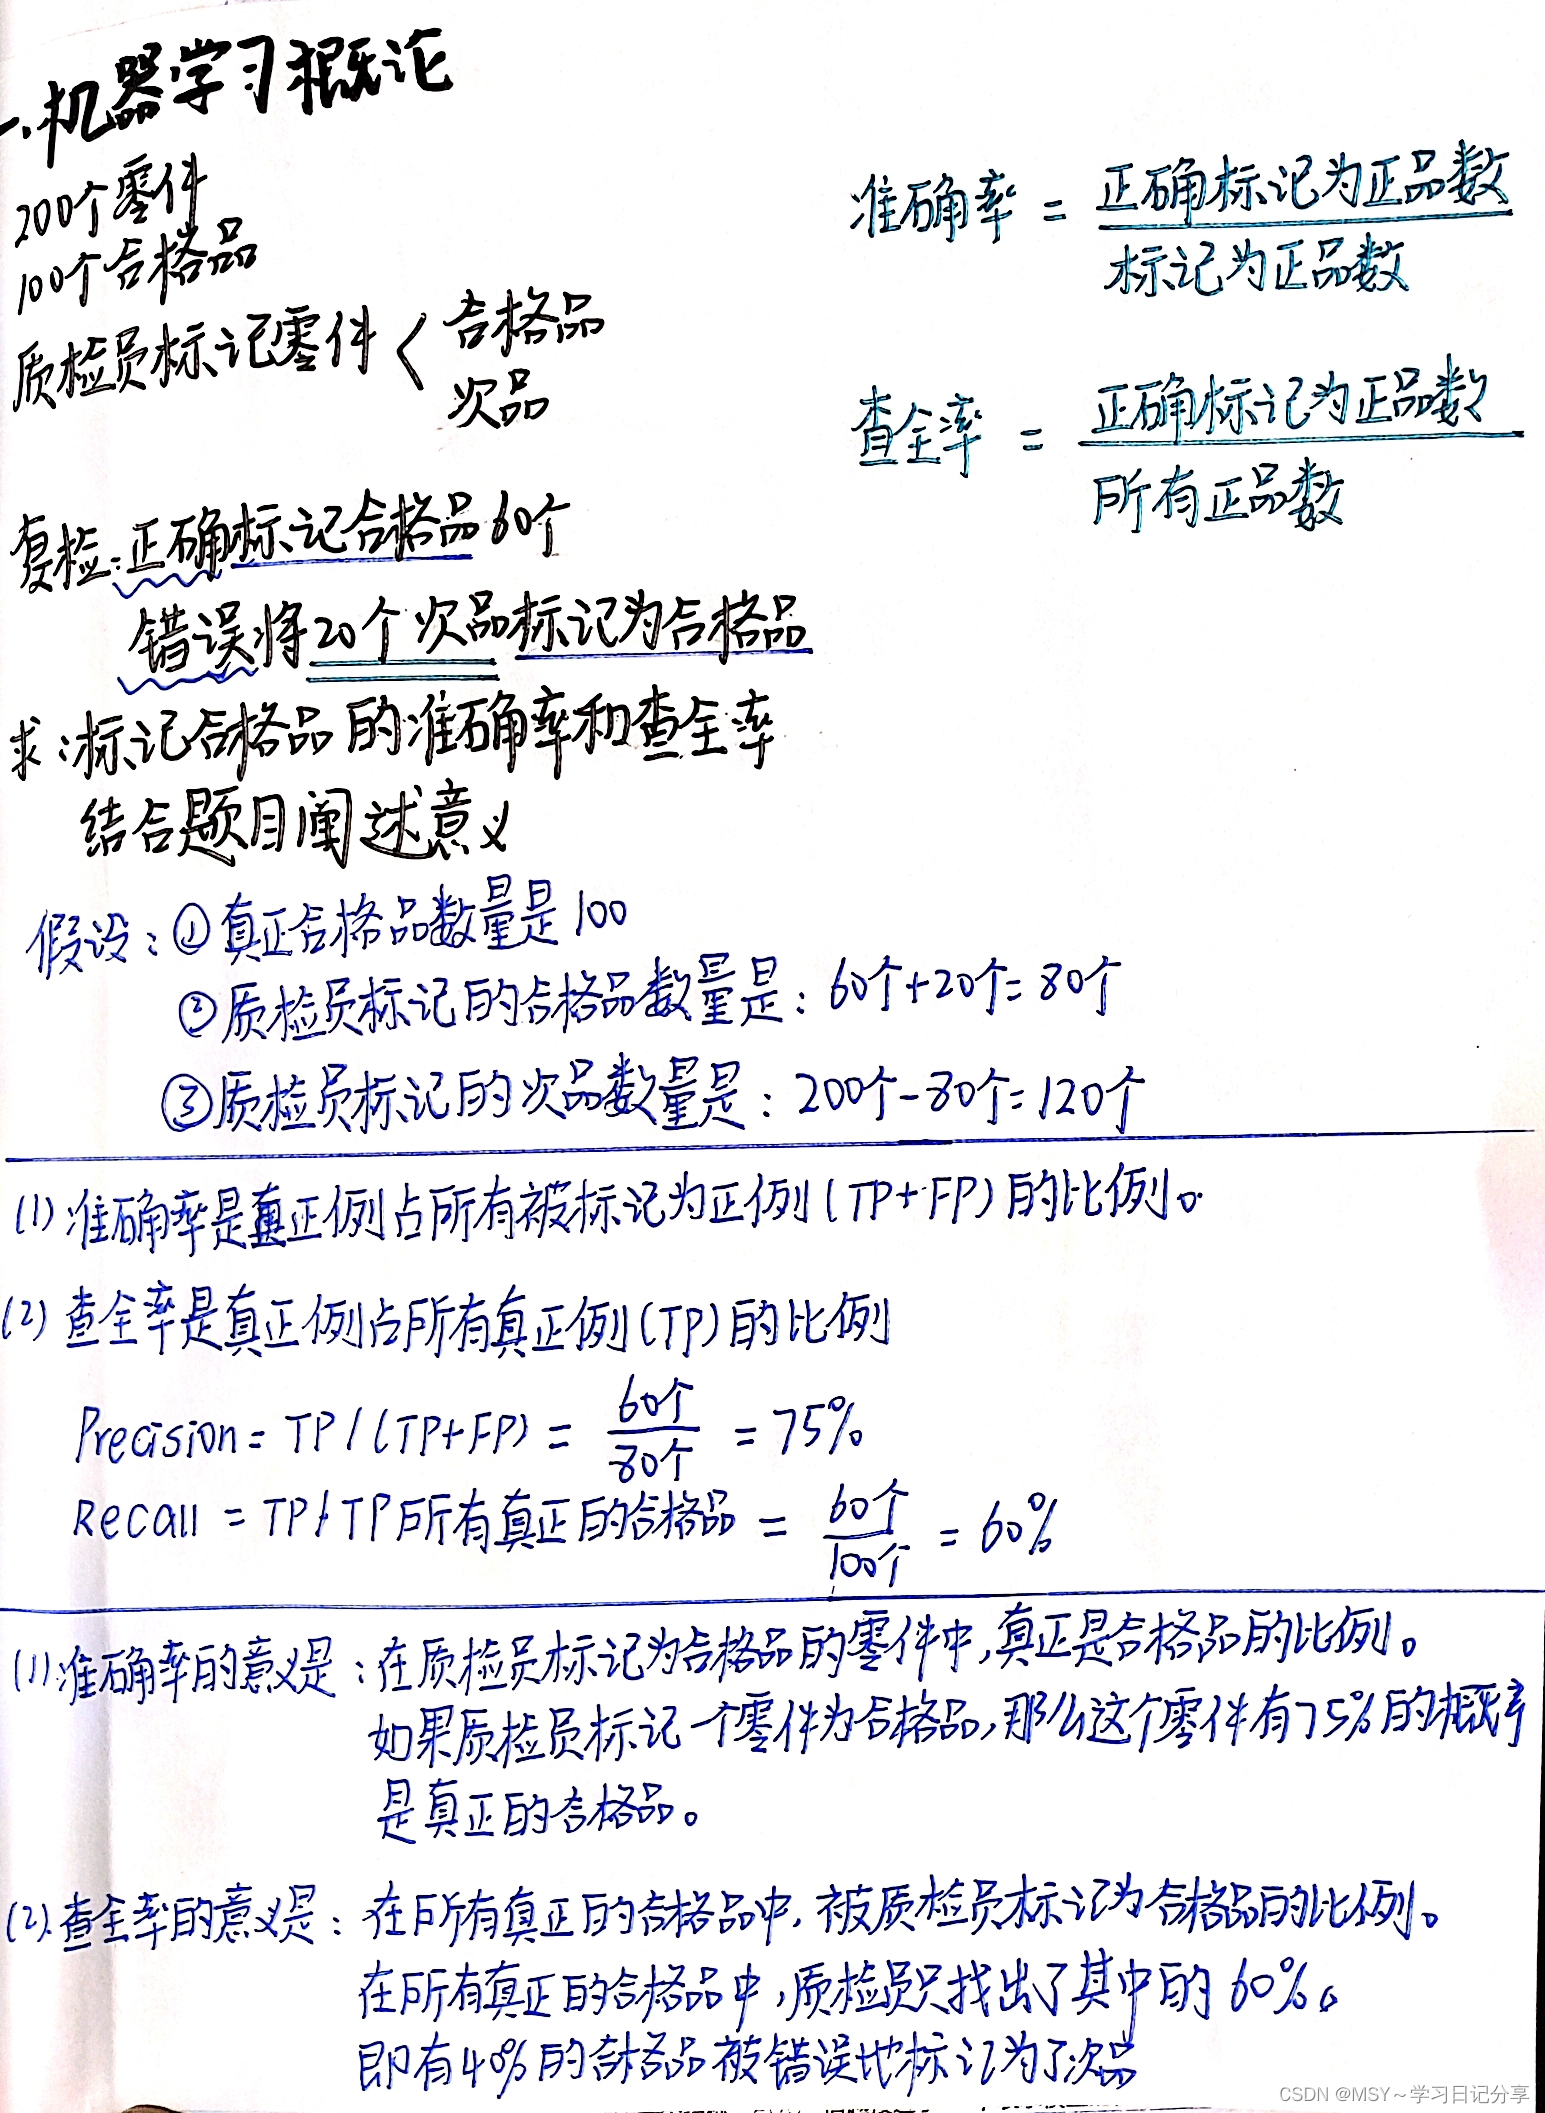 一.机器学习概论
200个零件
100个合格品
质检员标记零件<合格品
次品
准确率 = 正确标记为正品数
标记为正品数
查全率 = 正确标记为正品数
所有正品数
复检:正确标记合格品60个
错误将20个次品标记为合格品
求:标记合格品的准确率和查全率
结合题目阐述意义
假设:①真正合格品数量是100
②质检员标记的合格品数量是:60个+20个=80个
③质检员标记的次品数量是:200个-80个=120个
(1)准确率是真正例占所有被标记为正例(TP+FP)的比例。
(2)查全率是真正例占所有真正例(TP)的比例
Precision = TP/(TP+FP) = 60个/80个 = 75%
Recall = TP/TP所有真正的合格品 = 60个/100个 = 60%
(1).准确率的意义是:在质检员标记为合格品的零件中,真正是合格品的比例。
如果质检员标记一个零件为合格品,那么这个零件有75%的概率
是真正的合格品。
(2).查全率的意义是:在所有真正的合格品中,被质检员标记为合格品的比例。
在所有真正的合格品中,质检员只找出了其中的60%。
即有40%的合格品被错误地标记为了次品
CSDN @MSY～学习日记分享